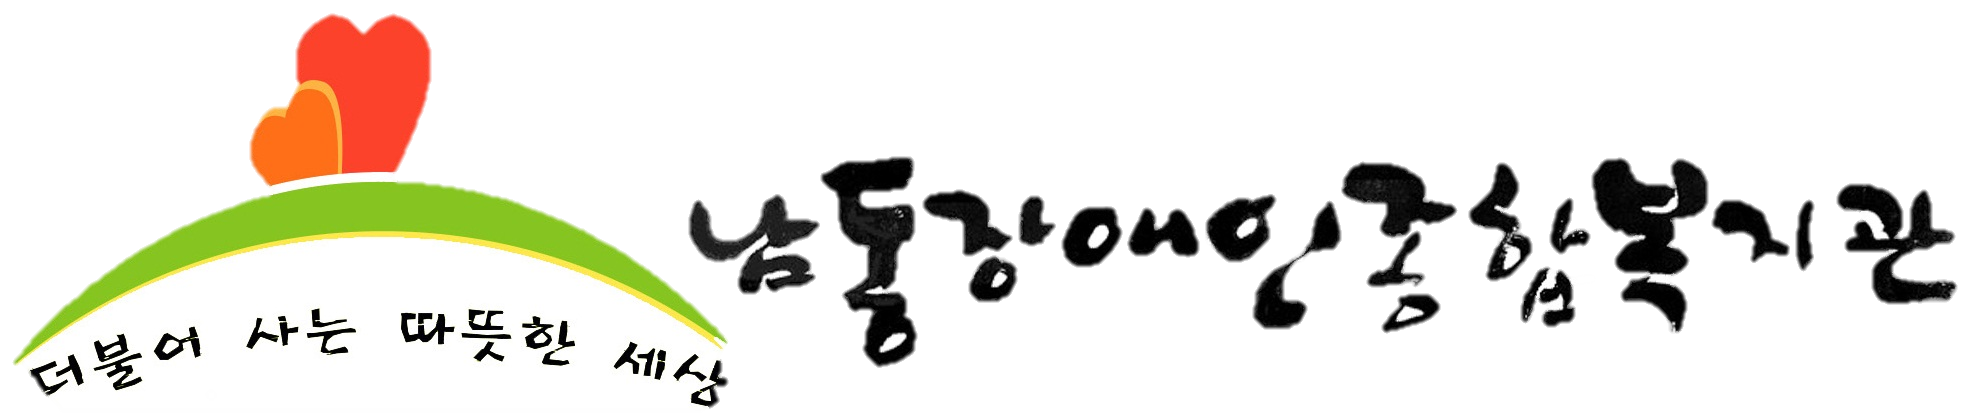 더불어 사는 따뜻한 세상
남동장애인종합복지관